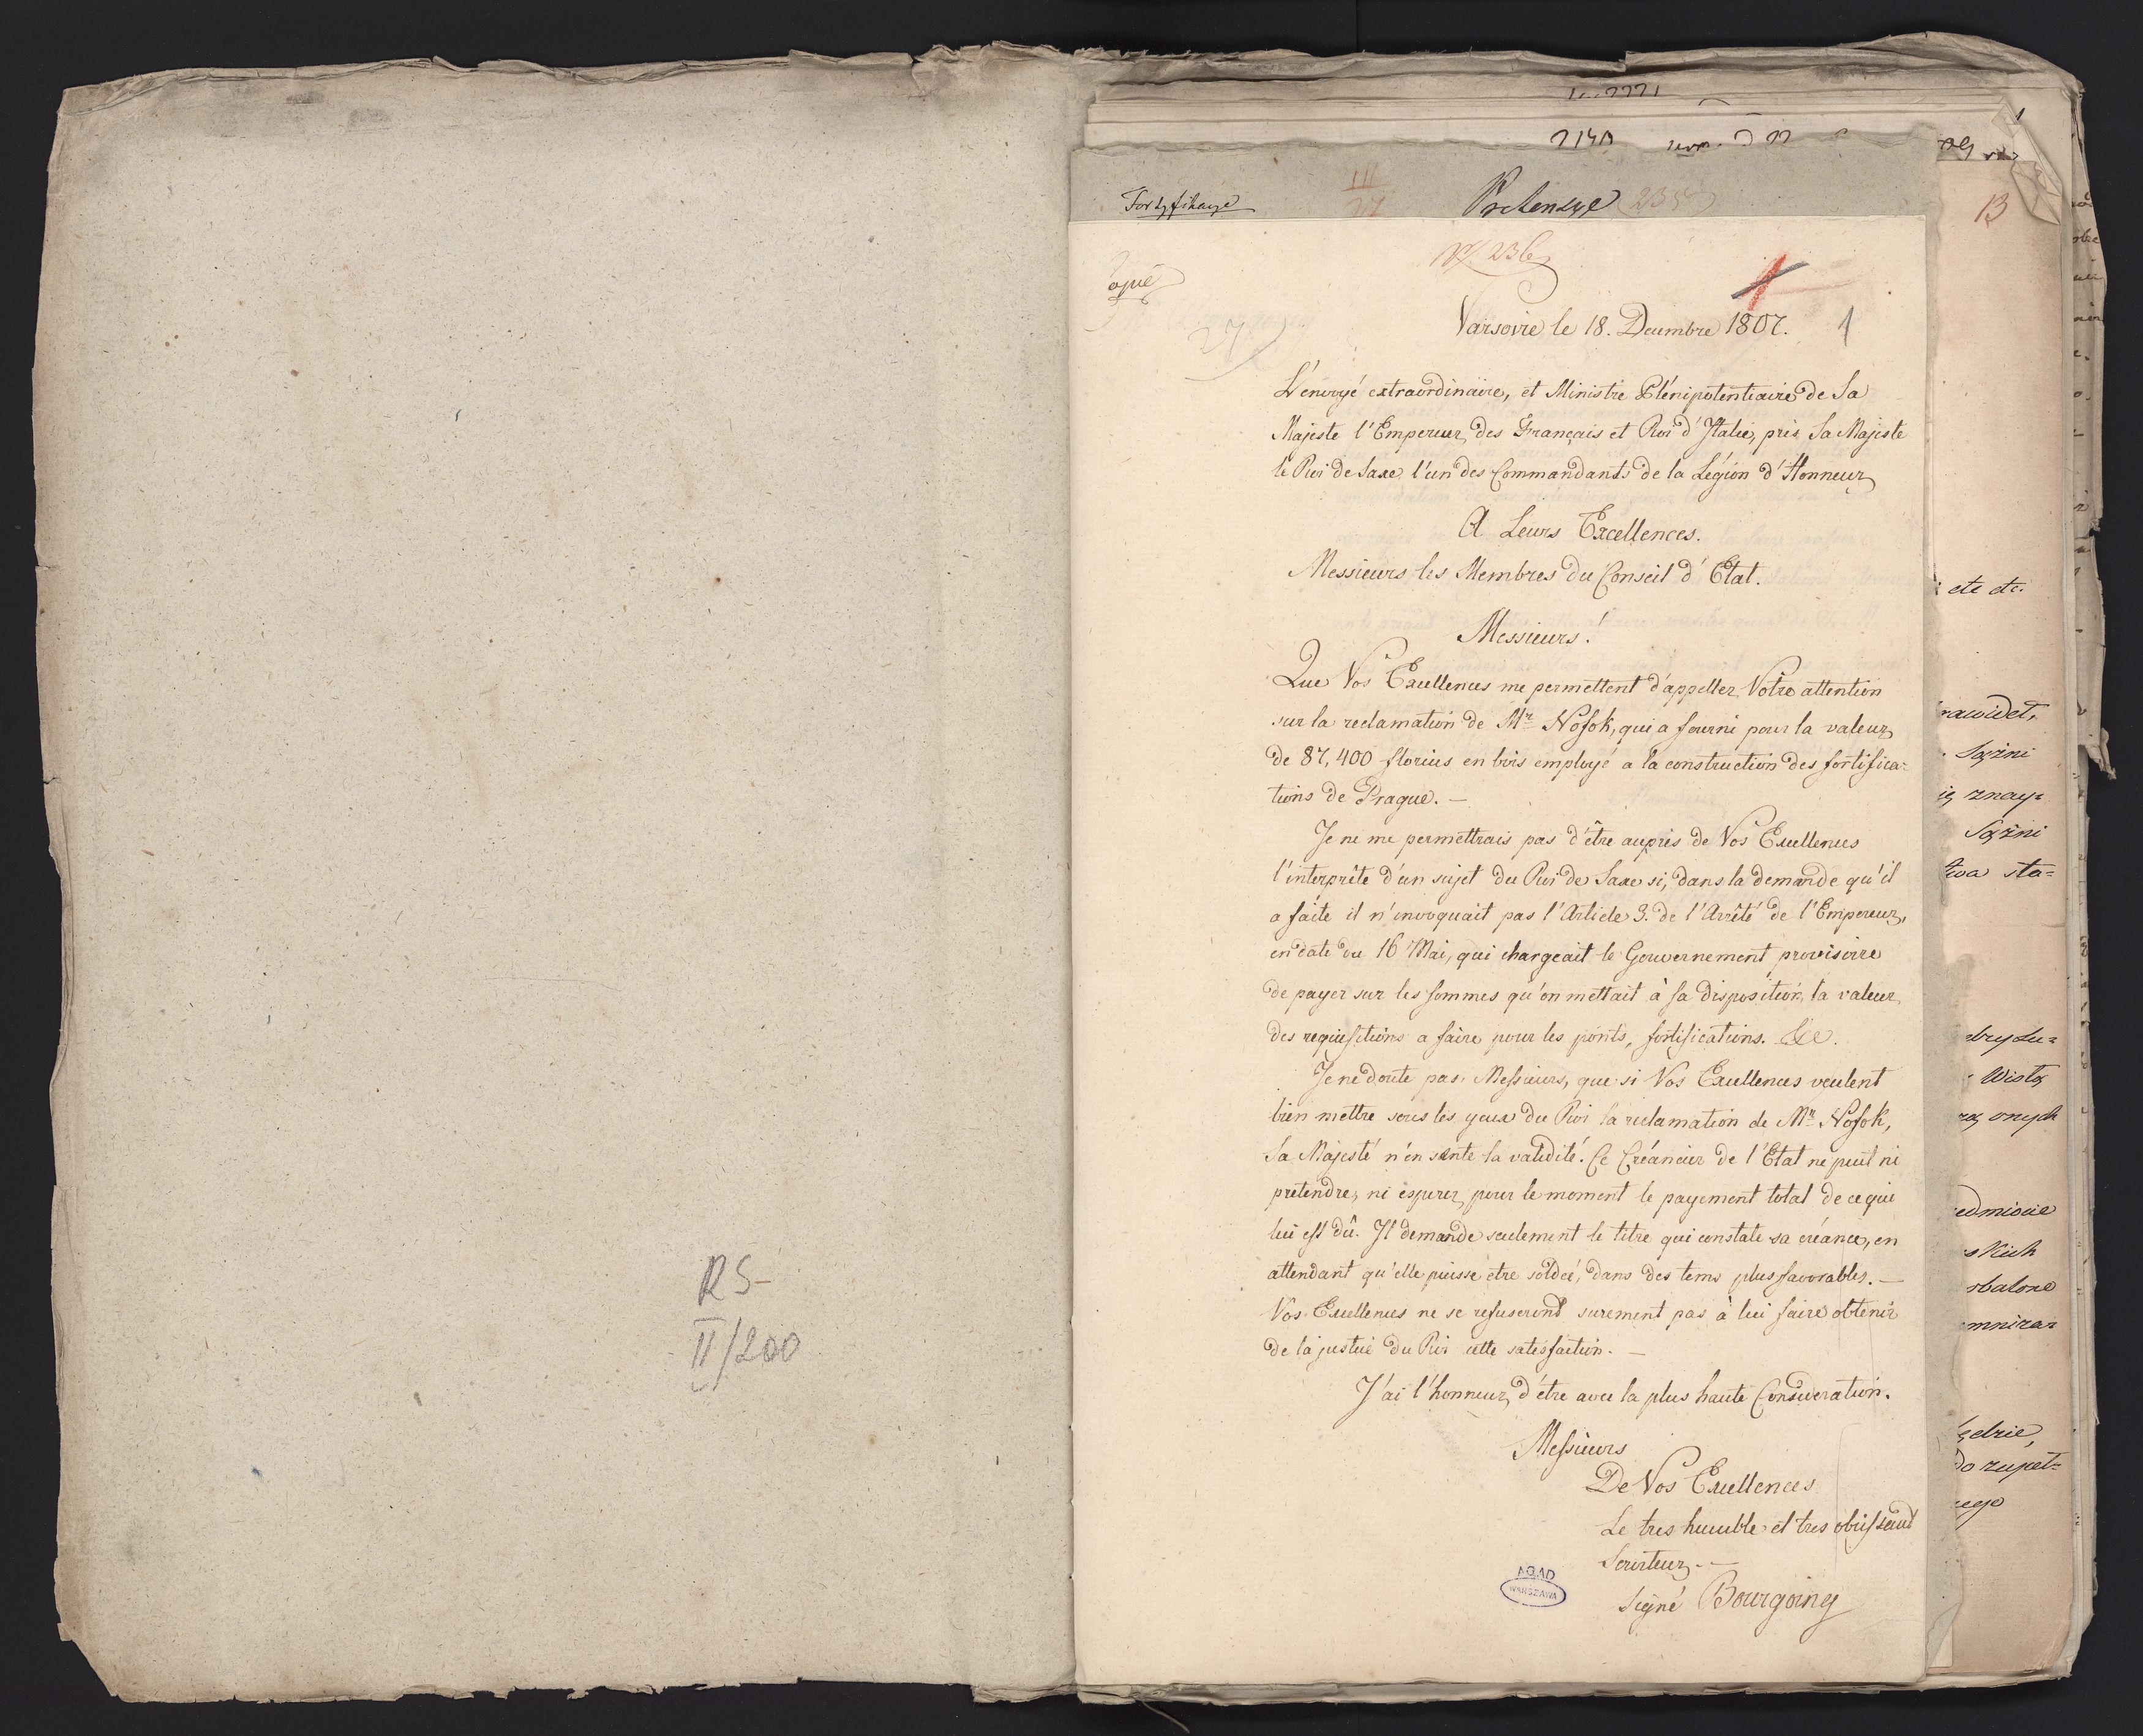 R S-
II/200
Fortyfikacye
III
Pretensye 235
№ 236
Copie
27
1
Varsovie le 18. Decembre 1807.
1
L'envoyé extraordinaire, et Ministre Plénipotentiaire de Sa
Majeste l'Empereur des Français et Roi d'Italie, près Sa Majeste
le Roi de Saxe l'un des Commandants de la Légion d'Honneur
A Leurs Excellences.
Messieurs les Membres du Conseil d'Etat.
Messieurs!
Que Vos Excellences me permettent d'appeller Votre attention
sur la reclamation de Mr Nosok, qui a fourni pour la valeur
de 87,400 florins en bois employé a la construction des fortifica-
tions de Prague. —
Je ne me permettrais pas d'être auprès de Vos Excellences
l'interprête d'un sujet du Roi de Saxe si, dans la demande qu'il
a faite il n'invoquait pas l'Article 3. de l'Arrêté de l'Empereur,
en date du 16 Mai, qui chargeait le Gouvernement provisoire
de payer sur les sommes qu'on mettait à sa disposition, la valeur
des requisitions a faire pour les ponts, fortifications. &c.
Je ne doute pas, Messieurs, que si Vos Excellences veulent
bien mettre sous les yeux du Roi la reclamation de Mr Nosok,
Sa Majesté n'en sente la validité. Ce Créancier de l'Etat ne peut ni
pretendre, ni esperer pour le moment le payement total de ce qui
lui est dû. Il demande seulement le titre qui constate sa créance, en
attendant qu'elle puisse etre soldée, dans des tems plus favorables. —
Vos Excellences ne se refuseront surement pas à lui faire obtenir
de la justice du Roi cette satisfaction. —
J'ai l'honneur d'être avec la plus haute Consideration.
Messieurs
De Vos Excellences
Le tres humble et tres obeissand
Serviteur --
Signé Bourgoing
AGAD
WARSZAWA
13
etc etc.
Sążni
się znay=
Sążni
sta=
Wisłą
onych